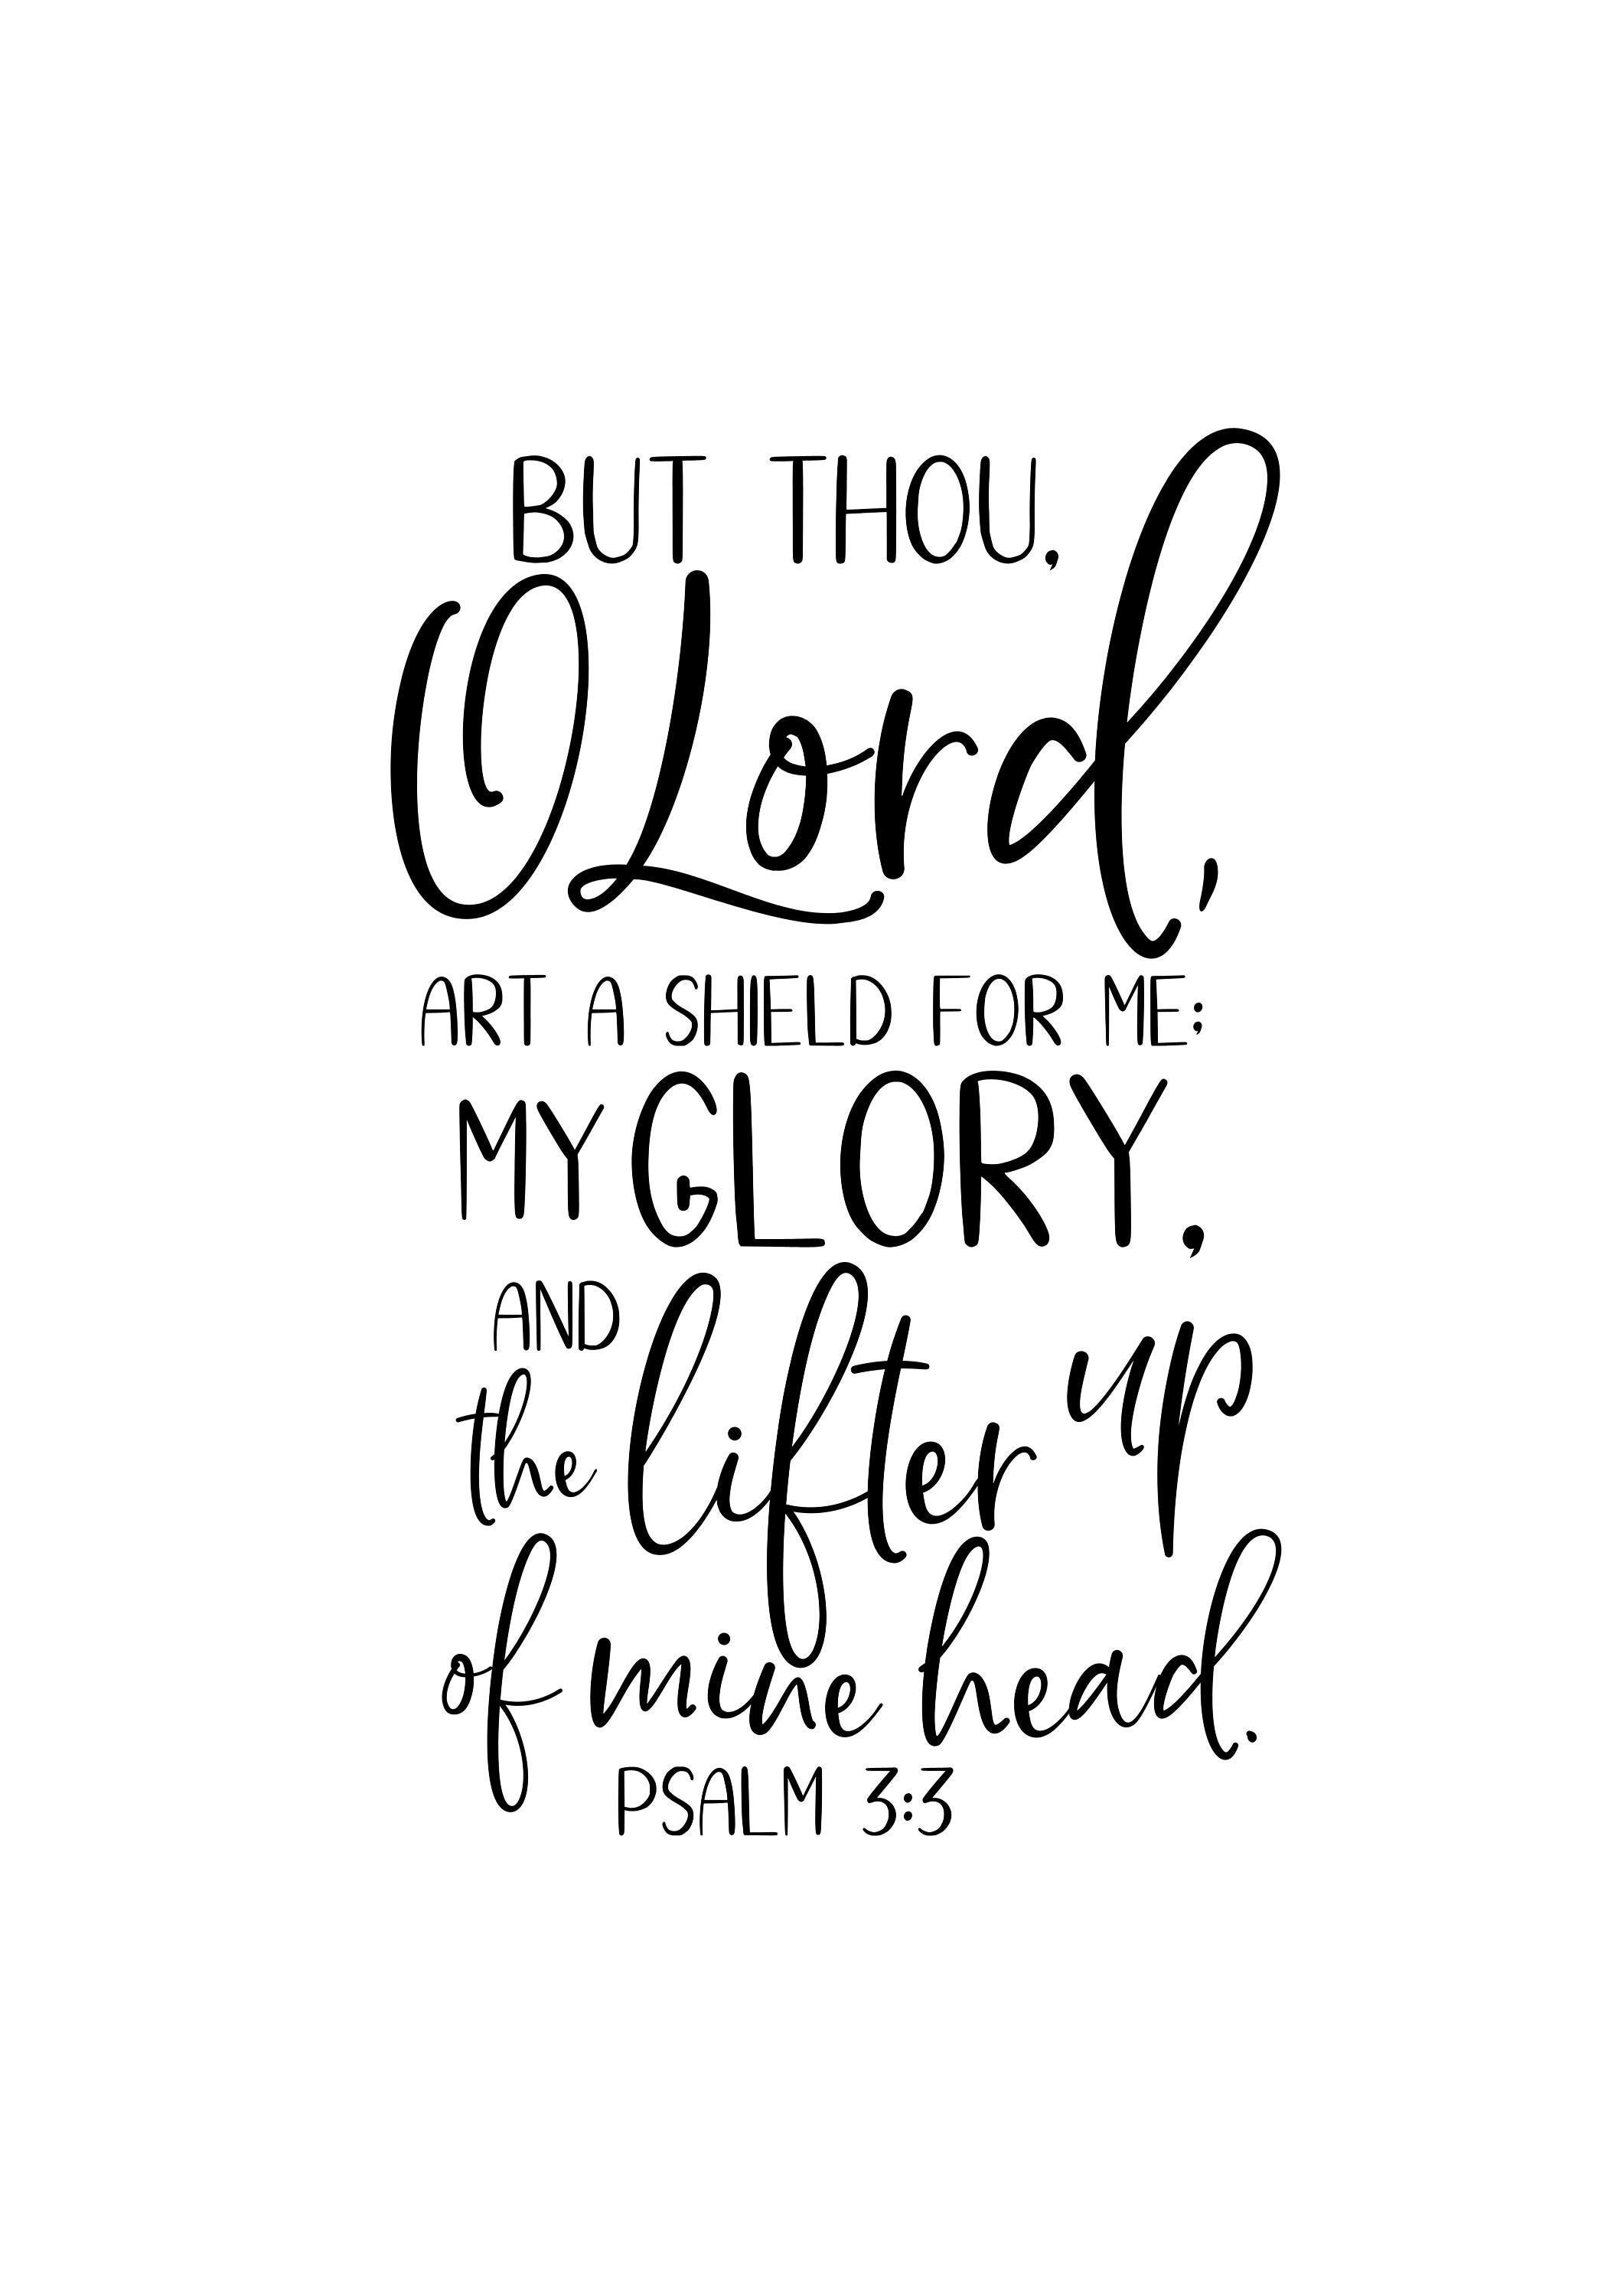 BUT THOU,
O Lord,
ART A SHIELD FOR ME;
MY GLORY,
AND
the lifter up
of mine head.
PSALM 3:3